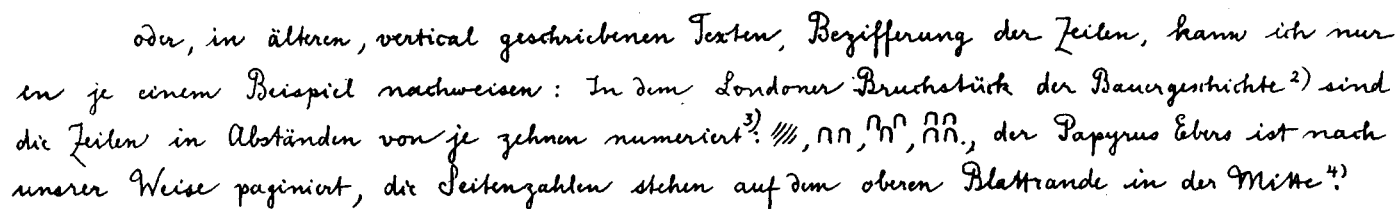 oder, in älteren, vertical geschriebenen Texten, Bezifferung der Zeilen, kann ich nur
in je einem Beispiel nachweisen: In dem Londoner Bruchstück der Bauergeschichte 2) sind
die Zeilen in Abständen von je zehnen numeriert 3): ////, ∩∩, ∩∩∩, ∩∩∩∩., der Papyrus Ebers ist nach
unsrer Weise paginiert, die Seitenzahlen stehen auf dem oberen Blattrande in der Mitte 4).